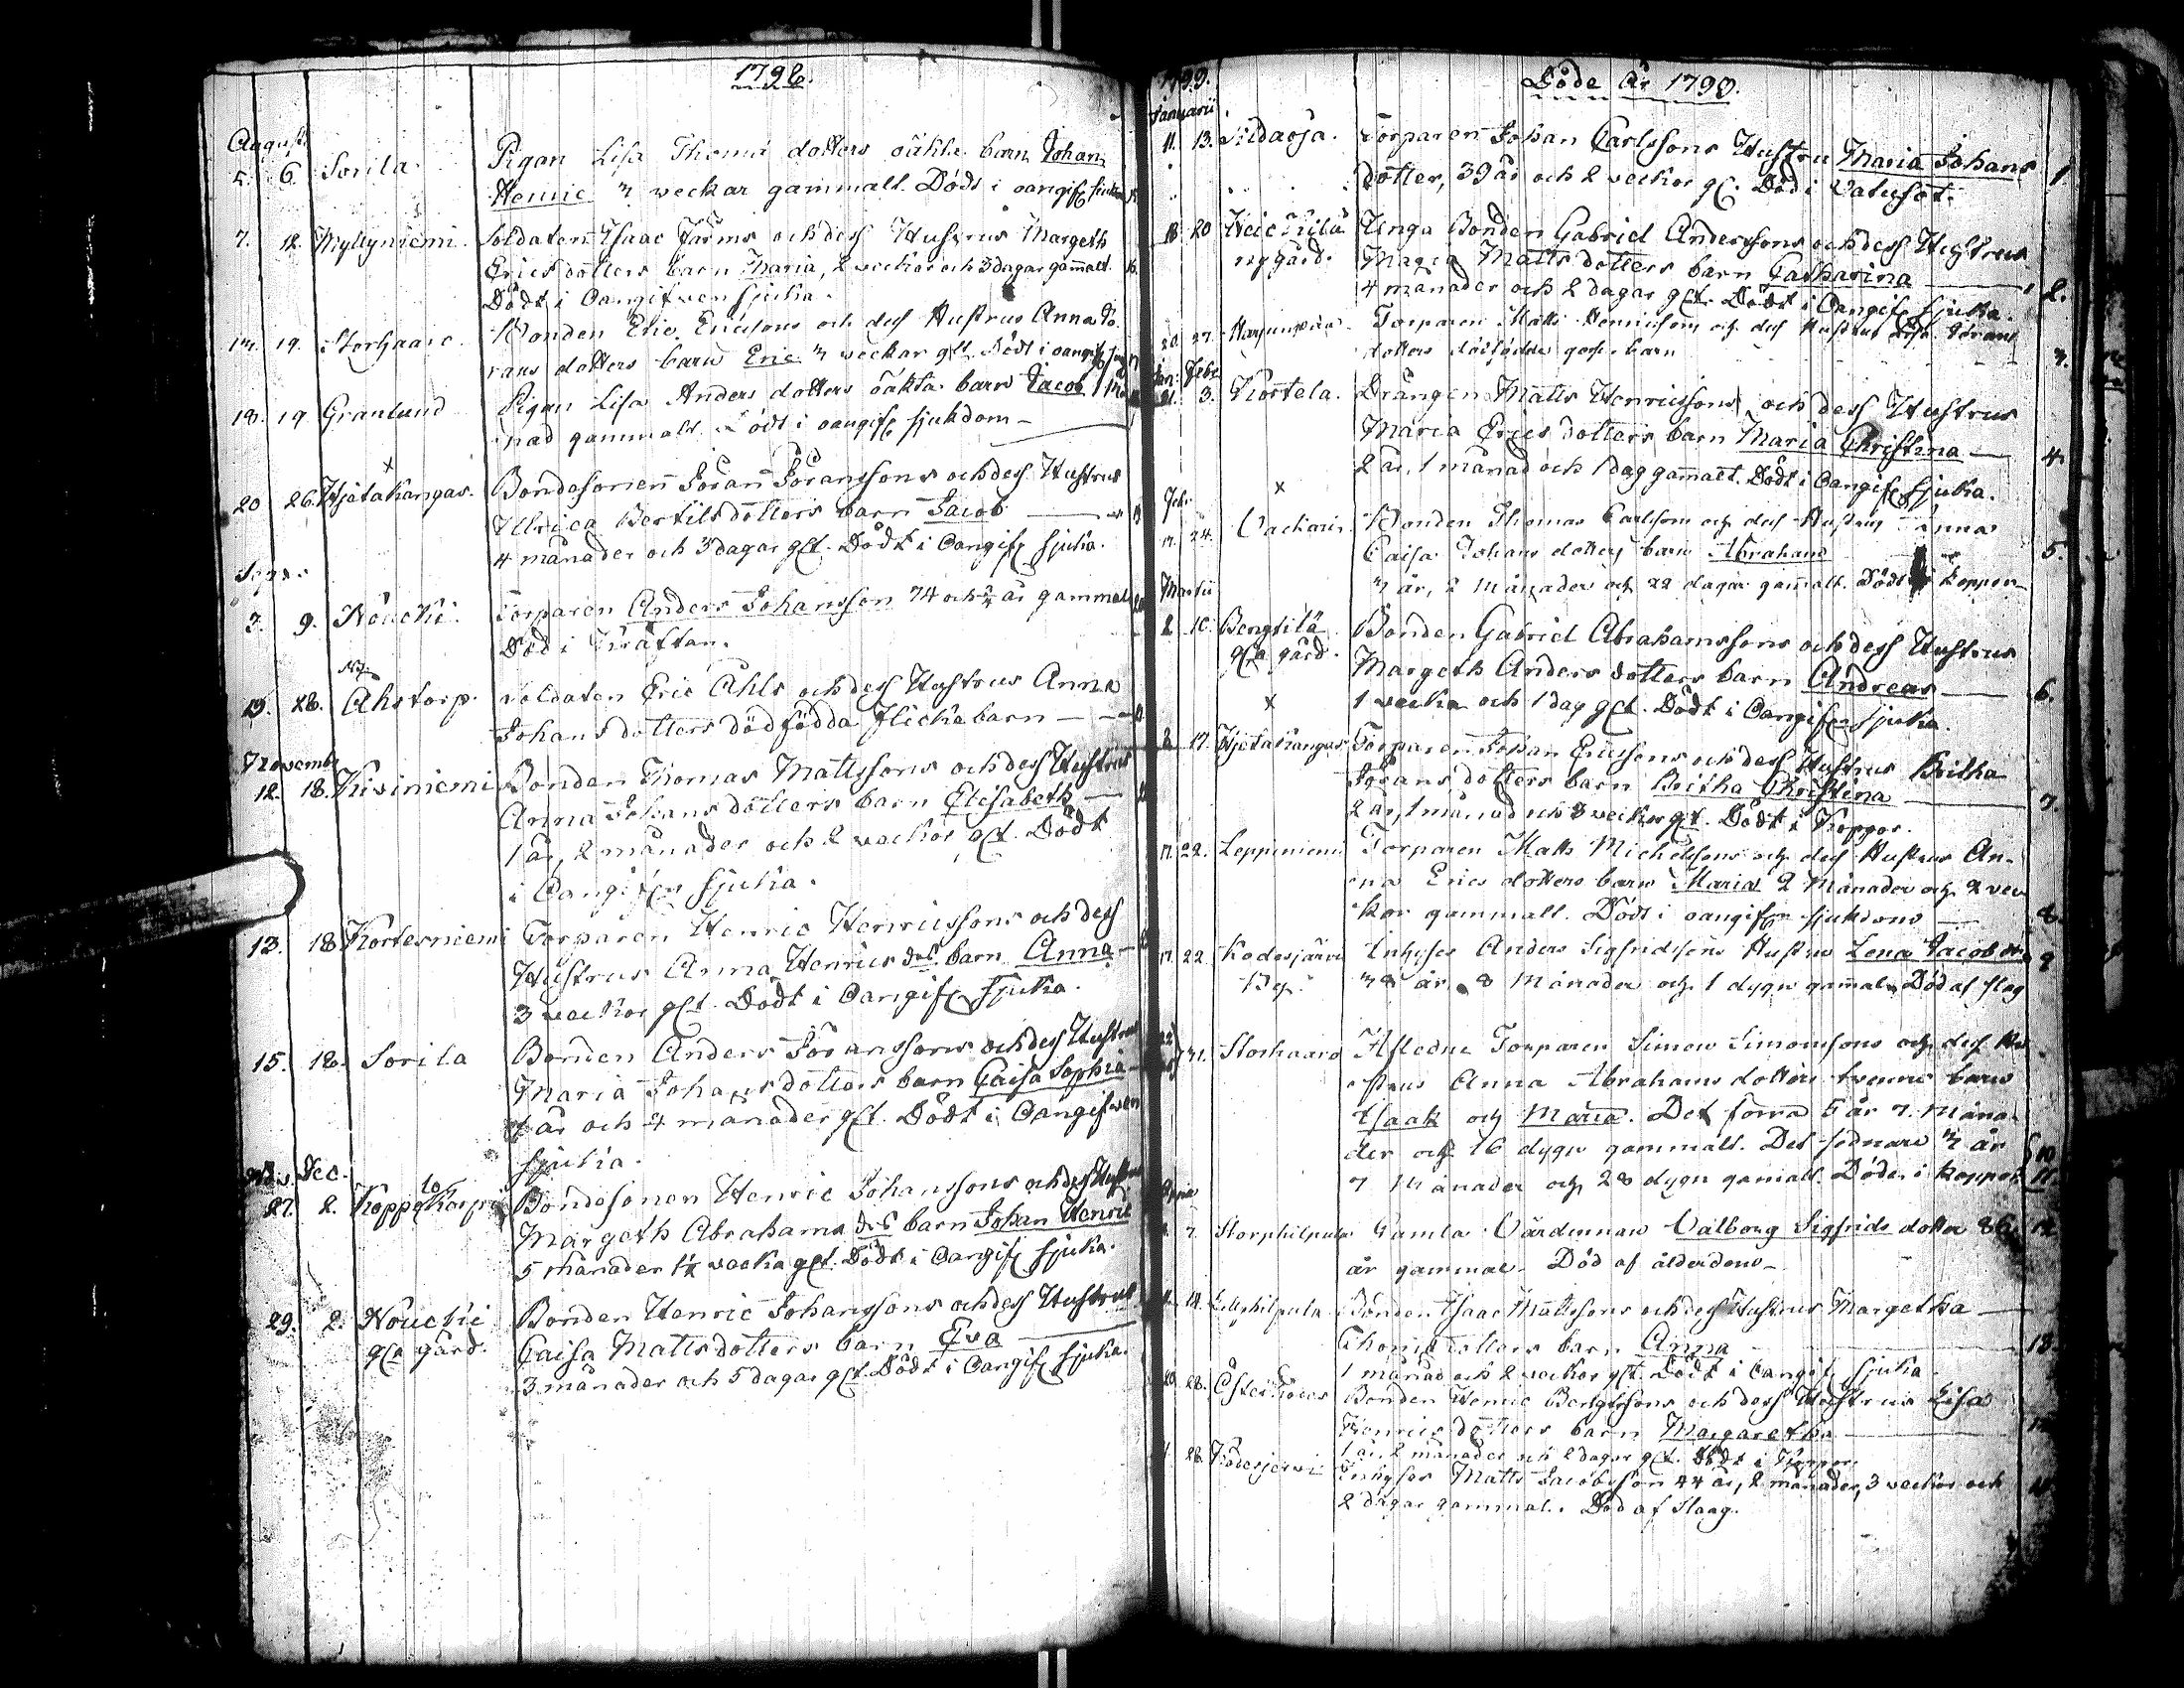 1798.
August.
5. 6. Sorila. Pigan Lisa Thomæ dotters oäkta barn Johan
Henric 3 veckar gammalt. Dödt i oangifv. sjukd.
7. 12. Myllyniemi. Soldaten Isaac Järms och dess Hustrus Margeth
Ericsdotters barn Maria, 2 veckor och 3 dagar gam̄alt.
Dödt i Oangifven sjuka.
19. Storhaaro. Bonden Eric Ericsons och dess Hustrus Anna Jö-
rans dotters barn Eric 3 veckar glt. Dödt i oangifv.
18. 19 Granlund Pigan Lisa Anders dotters oäkta barn Jacob 1 Må-
nad gammalt. Dödt i oangifv. sjukdom
x
20 26. Hjätakangas. Bondesonen Jöran Jöranssons och dess Hustrus
Ulrica Bertilsdotters barn Jacob
4 månader och 3 dagar glt. Dödt i Oangifv sjuka.
3. 9. Nouchi. Torparen Anders Johansson 74 och år gammal
Död i Kräftan.
Ny
28. Åhstorp. Soldaten Eric Åhls och dess Hustrus Anna
Johansdotters dödfödda flickebarn
Novembr
12. 18. Kiviniemi Bonden Thomas Mattssons och dess Hustrus
Anna Johansdotters barn Elisabeth
1 år, 2 månader och 2 veckor glt. Dödt
i Oangifven sjuka.
13. 18 Kortesniemi Torparen Henric Henricssons och dess
Hustrus Anna Henrics dotr barn Anna
3 veckor glt. Dödt i Oangifv sjuka.
15. 18. Sorila Bonden Anders Jöranssons och dess Hustrus
Maria Johansdotters barn Caisa Sophia
år och 4 månader glt. Dödt i Oangifven
sjuka.
Dec.
27. 2. Koppelokorpi Bondesonen Henric Johanssons och dess Hustrus
Margeth Abrahams dotr barn Johan Henric
5 månader 1½ vecka glt. Dödt i Oangifv sjuka.
29. 2. Nouchi Bonden Henric Johanssons och dess Hustrus
gla gård. Caisa Mattsdotters barn Eva
3 månader och 5 dagar glt. Dödt i Oangifv sjuka.
1799. Döde År 1799.
Januarii
11. 13. Torparen Johan Carlssons Hustru Maria Johans 1.
dotter, 39 år och 2 veckor gl. Död i Vatusot.
18 20 Heickilä Unga Bonden Gabriel Anderssons och dess Hustrus
ny gård. Maria Matts dotters barn Catharina 2.
4 månader och 2 dagar glt. Dödt i Oangifv sjuka.
20 27. Harjunpää Torparen Matts Henricsons och dess Hustrus Lisa Jörans
dotters dödfödda gosse barn 3.
Jan: Febr
31. 3. Kortela. Drängen Matts Henricssons och dess Hustrus
Maria Ericsdotters barn Maria Christina 4.
2 år, 1 månad och 1 dag gam̄alt. Dödt i Oangifv sjuka.
Febr x
17. 24. Vackari. Bonden Thomas Carlsons och dess Hustrus Anna
Caisa Johans dotters barn Abraham 5.
3 år, 2 Månader och 22 dagar gammalt. Dödt i koppor
Martii
2 10. Bengtilä Bonden Gabriel Abrahamssons och dess Hustrus
gla gård. Margeth Andersdotters barn Andreas 6.
x 1 vecka och 1 dag glt. Dödt i Oangifven sjuka.
17. Hjetakangas Torparen Johan Ericssons och dess Hustrus Britha
Jöransdotters barn Britha Christina 7
2 år, 1 månad och 3 veckor glt. Dödt i Koppor.
17. 22. Leppiniemi Torparen Matts Michelssons och dess Hustrus An-
na Erics dotters barn Maria 2 Månader och 2 vec
kor gammalt. Dödt i oangifven sjukdom 8.
17. 22. Kodesjärvi Inhyses Anders Sigfridssons Hustru Lena Jacobsdr 9
By. 38 år, 8 Månader och 1 dygn gammal. Död af slag
31. Storhaaro Afledne Torparen Simon Simonsons och dess Hu
strus Anna Abrahams dotters tvenne barn
Isaak och Maria. Det förra 5 år 7 Måna-
der och 16 dygn gammalt. Det sednare 3 år 10
7 Månader och 28 dygn gamalt. Döde i koppor. 11
7. Storphilpula Gamla Värdinnan Valborg Sigfrids dotter 86 12
år gammal. Död af ålderdom
14. Lillphilpula Bonden Isaac Mattssons och dess Hustrus Margetha
Thomædotters barn Anna 13.
1 månad och 2 veckor glt. Dödt i Oangifv sjuka
20. 28. Österköörs Bonden Henric Bengtssons och dess Hustrus Lisa
Henricsdotters barn Margaretha
1 år, 2 månader och 2 dagar glt. Dödt i Koppor.
28. Kodesjervi Inhyses Matts Jacobsson 44 år, 2 månader, 3 veckor och
2 dagar gammal. Död af Slaag.